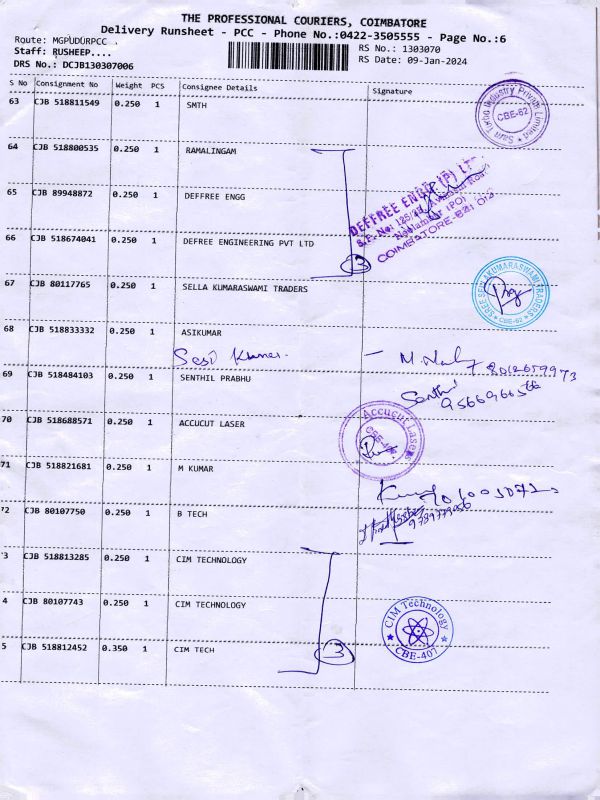 THE PROFESSIONAL COURIERS, COIMBATORE
Delivery Runsheet - PCC - Phone No.:0422-3505555 - Page No.:6
Route: MGPUDURPCC .
Staff: RUSHEEP....
DRS No.: DCJB130307006
RS No.: 1303070
RS Date: 09-Jan-2024
S No Consignment No Weight PCS Consignee Details Signature
63 CJB 518811549 0.250 1 SMTH
CBE-62
64 CJB 518800535 0.250 1 RAMALINGAM
65 CJB 89948872 0.250 1 DEFFREE ENGG
DEFFREE ENGG (P) LTD
COIMBATORE-641 012
66 CJB 518674041 0.250 1 DEFREE ENGINEERING PVT LTD
3
67 CJB 80117765 0.250 1 SELLA KUMARASWAMI TRADERS
SREE SELLAKUMARASWAMI TRADERS
CBE-62
68 CJB 518833332 0.250 1 ASIKUMAR
69 CJB 518484103 0.250 1 SENTHIL PRABHU
70 CJB 518688571 0.250 1 ACCUCUT LASER
Accucut Lasers
71 CJB 518821681 0.250 1 M KUMAR
'2 CJB 80107750 0.250 1 B TECH
'3 CJB 518813285 0.250 1 CIM TECHNOLOGY
4 CJB 80107743 0.250 1 CIM TECHNOLOGY
CIM Technology
CBE-407
5 CJB 518812452 0.350 1 CIM TECH
3